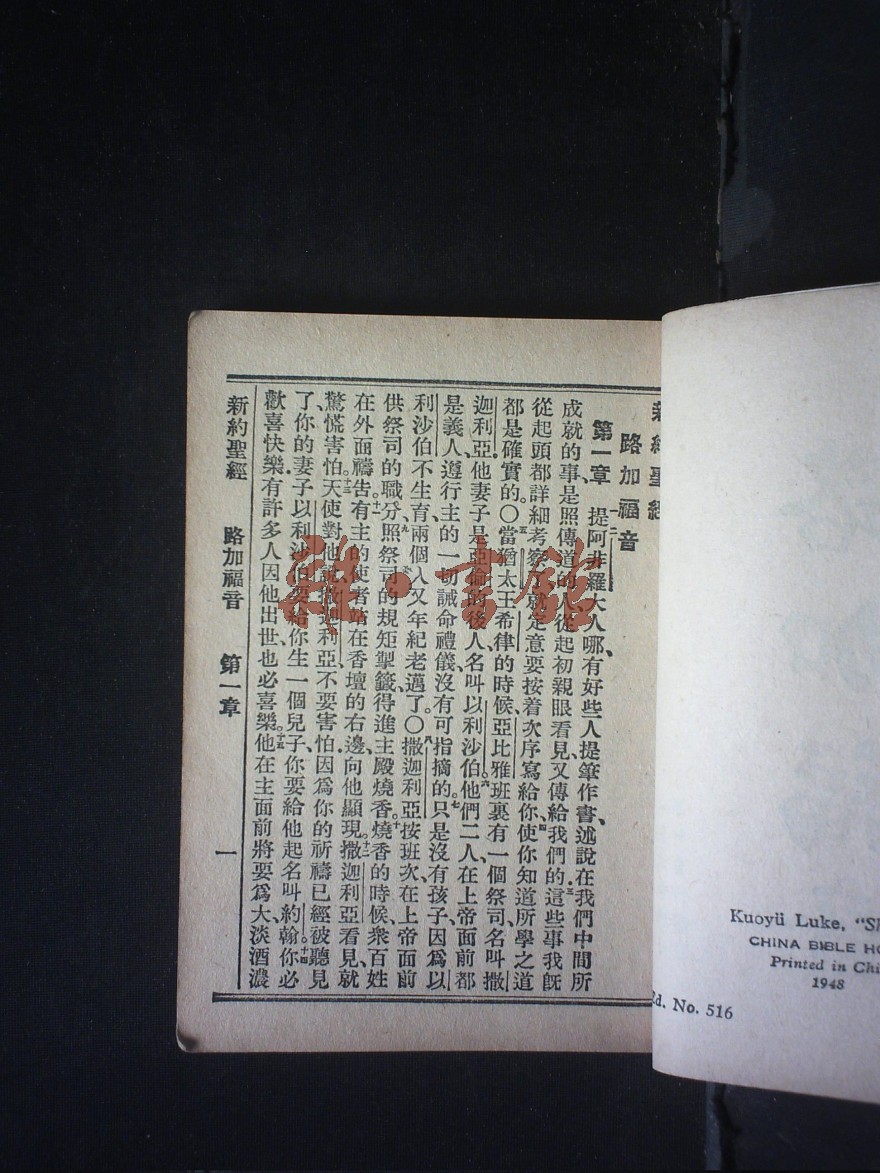 新約聖經
路加福音
第一章 一二提阿非羅大人哪、有好些人提筆作書、述說在我們中間所
成就的事、是照傳道的人、從起初親眼看見、又傳給我們的。三這些事我既
從起頭都詳細考察了、就定意要按着次序寫給你、四使你知道所學之道
都是確實的。〇五當猶太王希律的時候、亞比雅班裏有一個祭司、名叫撒
迦利亞、他妻子是亞倫的後人、名叫以利沙伯。六他們二人、在上帝面前都
是義人、遵行主的一切誡命禮儀、沒有可指摘的。七只是沒有孩子、因爲以
利沙伯不生育、兩個人又年紀老邁了。〇八撒迦利亞按班次、在上帝面前
供祭司的職分、九照祭司的規矩掣籤、得進主殿燒香。十燒香的時候、衆百姓
在外面禱告。十一有主的使者站在香壇的右邊、向他顯現。十二撒迦利亞看見、就
驚慌害怕。十三天使對他說、撒迦利亞、不要害怕、因爲你的祈禱已經被聽見
了、你的妻子以利沙伯要給你生一個兒子、你要給他起名叫約翰。十四你必
歡喜快樂、有許多人因他出世、也必喜樂。十五他在主面前將要爲大、淡酒濃
新約聖經 路加福音 第一章 一
雜·書館
Kuoyü Luke,
CHINA BIBLE
Printed in
1948
Ed. No. 516